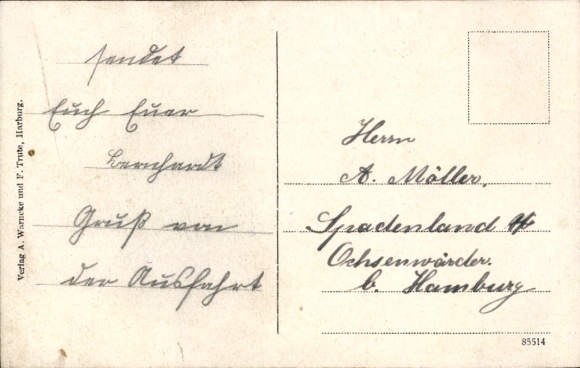 sendet
Euch Euer
Bernhardt
Gruß von
der Ausfahrt
Herrn
A. Möller,
Spadenland
Ochsenwärder.
b. Hamburg
Verlag A. Warnecke und F. Trute, Harburg.
85514